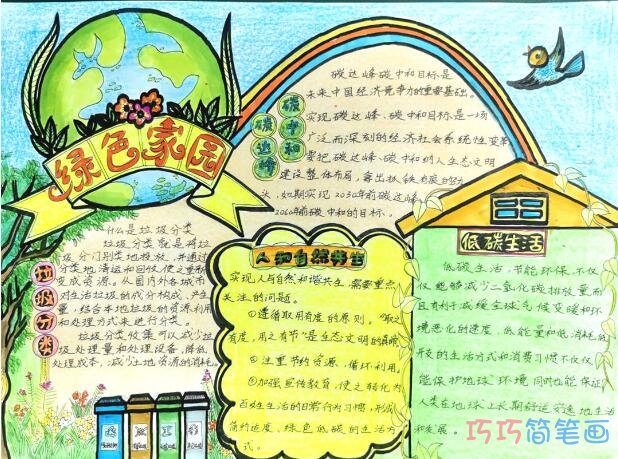 绿色家园
碳达峰
碳中和
碳达峰碳中和目标是
未来中国经济竞争力的重要基础。
实现碳达峰、碳中和目标是一场
广泛而深刻的经济社会系统性变革
要把碳达峰、碳中和纳入生态文明
建设整体布局,拿出抓铁有痕的
如期实现2030年前碳达峰、
2060年前碳中和的目标。
垃圾分类
什么是垃圾分类
垃圾分类就是将垃
圾分门别类地投放,并通过
分类地清运和回收,使之重新
变成资源。从国内外各城市
对生活垃圾的成分构成、产生
量,结合本地垃圾的资源利用
和处理方式来进行分类。
垃圾分类收集可以减少垃
圾处理量和处理设备,降低
处理成本,减少土地资源的消耗。
人和自然共生
实现人与自然和谐共生,需要重点
关注的问题。
①遵循取用有度的原则。"取之
有度,用之有节"是生态文明的真谛
②注重节约资源,循环利用。
③加强宣传教育,使之转化为
百姓生活的日常行为习惯,形成
简约适度、绿色低碳的生活方
式。
低碳生活
低碳生活,节能环保,不仅
仅能够减少二氧化碳排放量,而
且有利于减缓全球气候变暖和
环境恶化的速度,低能量和低消耗、低
开支的生活方式和消费习惯不仅仅
能保护地球环境同时也能保证
人类在地球上长期舒适安逸地生活
和发展。
巧巧简笔画